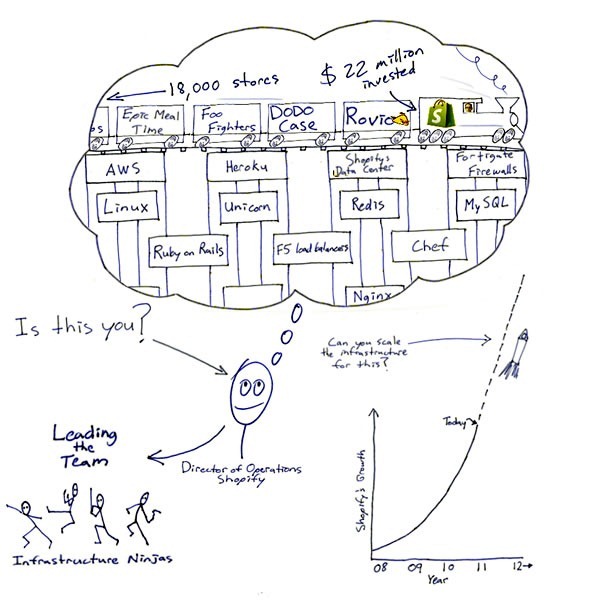 18,000 stores
$22 million
invested
os
Epic Meal
Time
Foo
Fighters
DODO
Case
Rovio
S
AWS
Heroku
Shopify's
Data Center
Fortigate
Firewalls
Linux
Unicorn
Redis
MySQL
Ruby on Rails
F5 load balancers
Chef
Nginx
Is this you?
Can you scale
the infrastructure
for this?
Leading
the
Team
Director of Operations
Shopify
Infrastructure Ninjas
Today
Shopify's Growth
08 09 10 11 12
Year